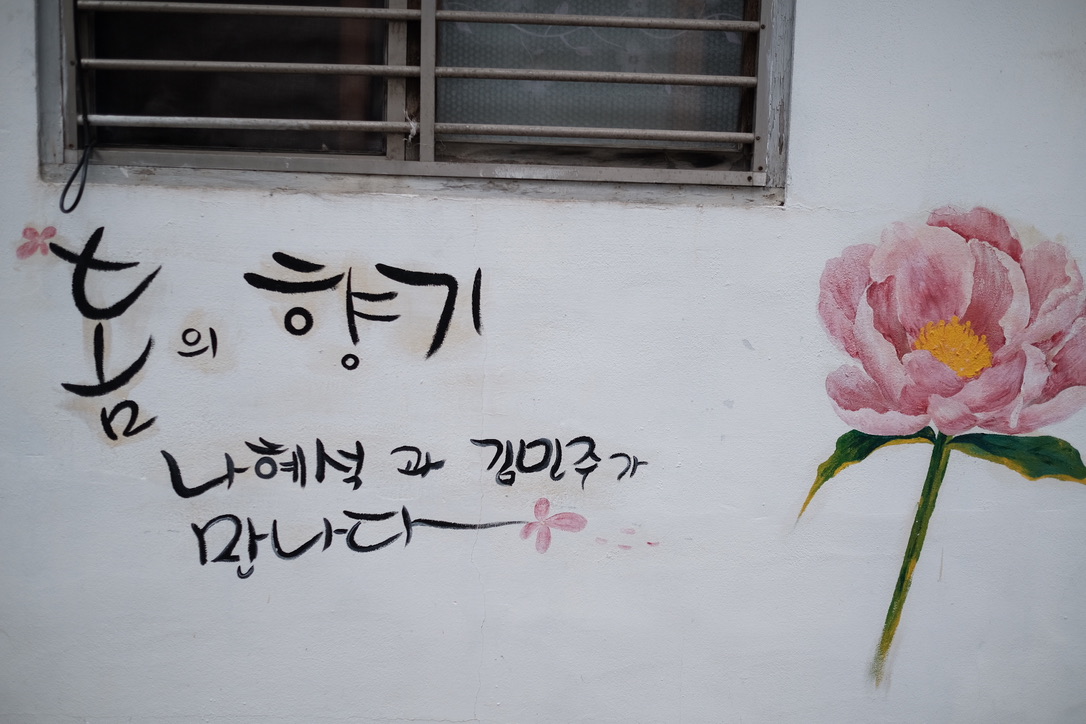 봄의 향기
나혜석과 김민주가
만나다